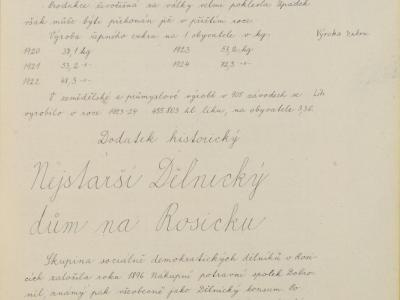 Produkce živočišná za války velmi poklesla. Úpadek
však může býti překonán již v příštím roce.
Výroba řepného cukru na 1 obyvatele v kg: Výroba cukru
1920 39,1 kg 1923 53,2 kg
1921 53,2 -"- 1924 82,3 -"-
1922 48,3 -"-
V zemědělské a průmyslové výrobě v 905 závodech se Líh
vyrobilo v roce 1923-24 455.803 hl lihu, na obyvatele 3,3 l.
Dodatek historický
Nejstarší Dělnický
dům na Rosicku
Skupina sociálně demokratických dělníků v
cích založila roku 1896 Nákupní potravní spolek
známý pak všeobecně jako Dělnický konsum